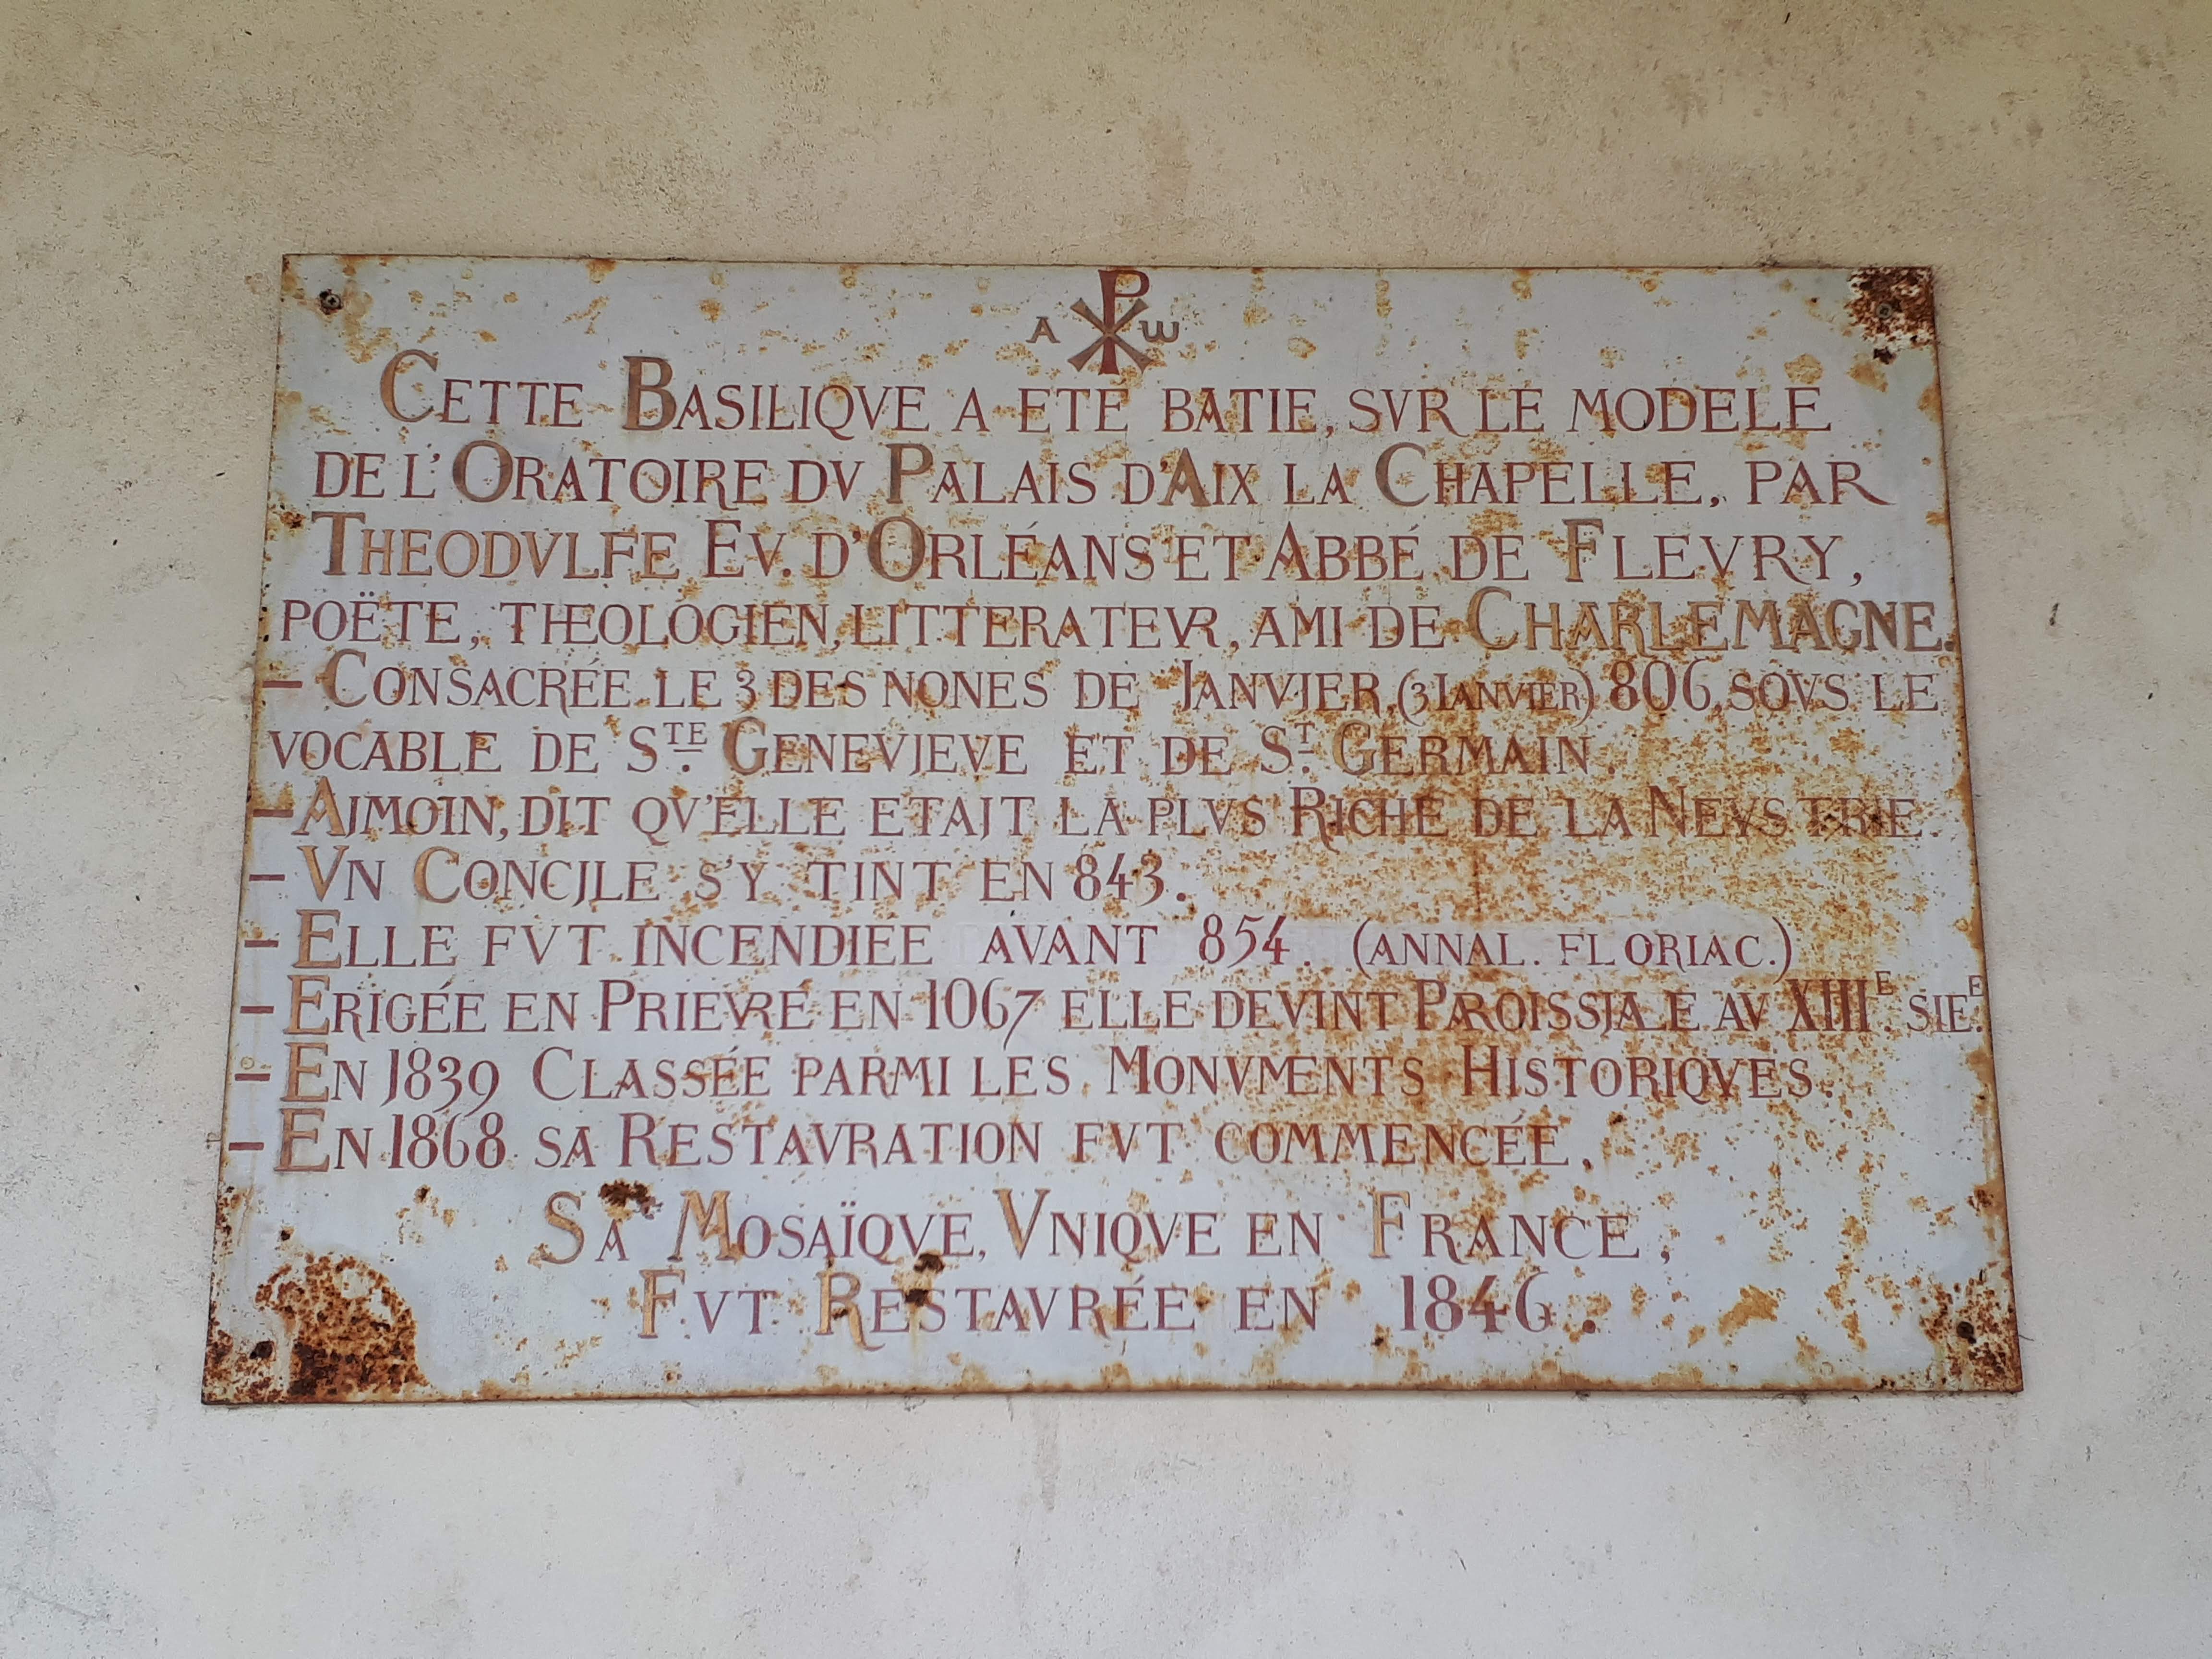 A ☧ ω
CETTE BASILIQVE A ETÉ BATIE, SVR LE MODELE
DE L'ORATOIRE DV PALAIS D'AIX LA CHAPELLE, PAR
THEODVLFE EV. D'ORLÉANS ET ABBÉ DE FLEVRY,
POËTE, THEOLOGIEN, LITTERATEVR, AMI DE CHARLEMAGNE.
– CONSACRÉE LE 3 DES NONES DE JANVJER, (3 IANVIER) 806, SOVS LE
VOCABLE DE STE. GENEVJEVE ET DE ST. GERMAIN.
– AJMOIN, DIT QV'ELLE ETAJT LA PLVS RICHE DE LA NEVSTRIE.
– VN CONCJLE S'Y TINT EN 843.
– ELLE FVT INCENDIEE AVANT 854. (ANNAL. FLORIAC.)
– ERIGÉE EN PRIEVRÉ EN 1067 ELLE DEVINT PAROISSJALE AV XIIIE. SIEE.
– EN 1839 CLASSÉE PARMI LES MONVMENTS HISTORIQVES.
– EN 1868 SA RESTAVRATION FVT COMMENCÉE.
SA MOSAÏQVE, VNIQVE EN FRANCE,
FVT RESTAVRÉE EN 1846.